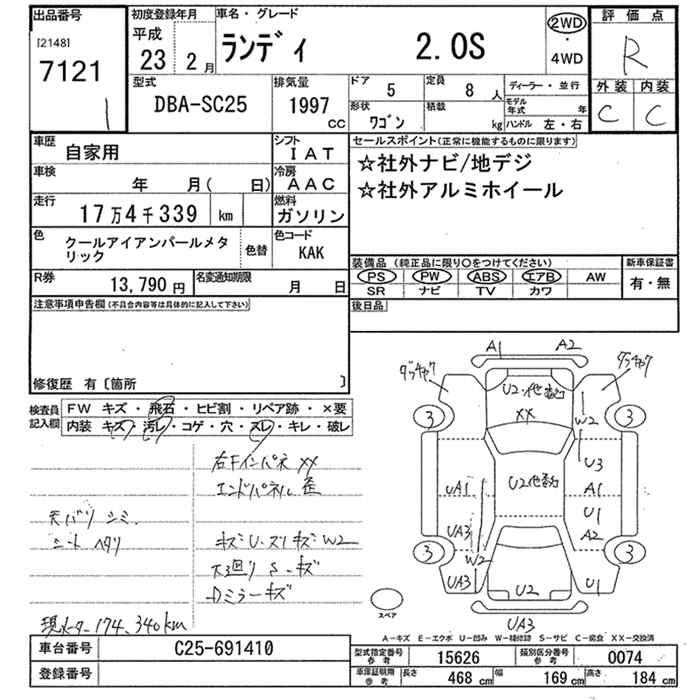 出品番号
[2148]
7121
1
初度登録年月
平成
23 2 月
車名・グレード
ランディ 2.0S
2WD
・
4WD
評価点
R
外装 内装
C C
型式
DBA-SC25
排気量
1997
cc
ドア
5
定員
8 人
形状
ワゴン
積載
kg
ディーラー・並行
モデル年式 年
ハンドル 左・右
車歴
自家用
シフト
IAT
車検
年 月( 日)
冷房
AAC
走行
17万4千339 km
燃料
ガソリン
色
クールアイアンパールメタリック
色替
色コード
KAK
R券
13,790 円
名変通知期限
月 日
セールスポイント(正常に機能するものに限ります)
☆社外ナビ/地デジ
☆社外アルミホイール
装備品(純正品に限り○をつけてください)
PS PW ABS エアB AW
SR ナビ TV カワ
新車保証書
有・無
後日品
注意事項申告欄(不具合内容等は具体的に記入して下さい)
修復歴 有〔箇所 〕
検査員記入欄
FW キズ・飛石・ヒビ割・リペア跡・×要
内装 キズ・汚レ・コゲ・穴・スレ・キレ・破レ
右Fインパネ XX
エンドパネル 歪
天バリ シミ.
シート ヘタリ
キズU・スリキズ W2
下廻り S・キズ
Dミラーキズ
現メーター174,340km
A1 A2
U2・他数 XX
3 3
W2
U3
U2他数
UA1
A1
U1
UA3
A2
W2
3 3
UA3
U2
U1
スペア
UA3
A-キズ E-エクボ U-凹み W-補修跡 S-サビ C-腐食 XX-交換済
車台番号
C25-691410
登録番号
型式指定番号 参考
15626
類別区分番号 参考
0074
車庫証明用 参考
長さ 468 cm 幅 169 cm 高さ 184 cm